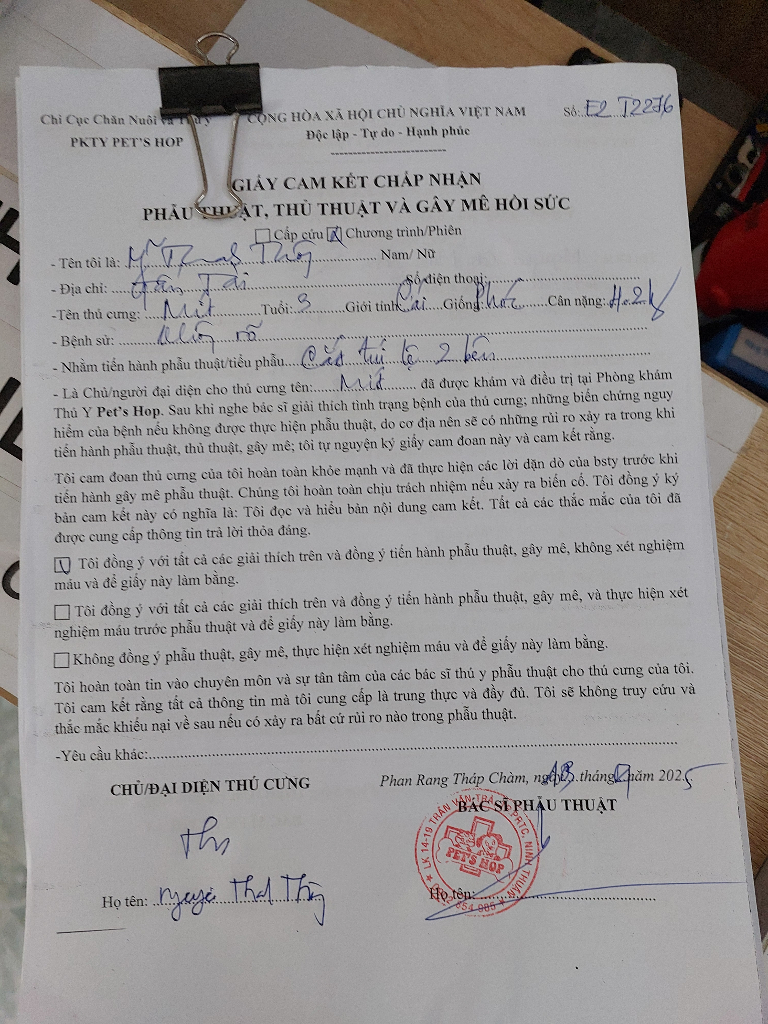 Chi Cục Chăn Nuôi và Thú y CỘNG HÒA XÃ HỘI CHỦ NGHĨA VIỆT NAM Số: E2 T2276
PKTY PET'S HOP Độc lập - Tự do - Hạnh phúc
GIẤY CAM KẾT CHẤP NHẬN
PHẪU THUẬT, THỦ THUẬT VÀ GÂY MÊ HỒI SỨC
Cấp cứu Chương trình/Phiên
- Tên tôi là: Thanh Nam/ Nữ
- Địa chỉ: Tài Số điện thoại:
-Tên thú cưng: Mít Tuổi: 3 Giới tính: Cái Giống: Phốc Cân nặng: 4.2kg
- Bệnh sử: không rõ
- Nhằm tiến hành phẫu thuật/tiểu phẫu: Cắt túi lệ 2 bên
- Là Chủ/người đại diện cho thú cưng tên: Mít đã được khám và điều trị tại Phòng khám
Thú Y Pet's Hop. Sau khi nghe bác sĩ giải thích tình trạng bệnh của thú cưng; những biến chứng nguy
hiểm của bệnh nếu không được thực hiện phẫu thuật, do cơ địa nên sẽ có những rủi ro xảy ra trong khi
tiến hành phẫu thuật, thủ thuật, gây mê; tôi tự nguyện ký giấy cam đoan này và cam kết rằng.
Tôi cam đoan thú cưng của tôi hoàn toàn khỏe mạnh và đã thực hiện các lời dặn dò của bsty trước khi
tiến hành gây mê phẫu thuật. Chúng tôi hoàn toàn chịu trách nhiệm nếu xảy ra biến cố. Tôi đồng ý ký
bản cam kết này có nghĩa là: Tôi đọc và hiểu bản nội dung cam kết. Tất cả các thắc mắc của tôi đã
được cung cấp thông tin trả lời thỏa đáng.
Tôi đồng ý với tất cả các giải thích trên và đồng ý tiến hành phẫu thuật, gây mê, không xét nghiệm
máu và để giấy này làm bằng.
Tôi đồng ý với tất cả các giải thích trên và đồng ý tiến hành phẫu thuật, gây mê, và thực hiện xét
nghiệm máu trước phẫu thuật và để giấy này làm bằng.
Không đồng ý phẫu thuật, gây mê, thực hiện xét nghiệm máu và để giấy này làm bằng.
Tôi hoàn toàn tin vào chuyên môn và sự tân tâm của các bác sĩ thú y phẫu thuật cho thú cưng của tôi.
Tôi cam kết rằng tất cả thông tin mà tôi cung cấp là trung thực và đầy đủ. Tôi sẽ không truy cứu và
thắc mắc khiếu nại về sau nếu có xảy ra bất cứ rủi ro nào trong phẫu thuật.
-Yêu cầu khác:
Phan Rang Tháp Chàm, ngày tháng năm 2025
CHỦ/ĐẠI DIỆN THÚ CƯNG BÁC SĨ PHẪU THUẬT
LK 14-19 TRẦN VĂN TRÀ, PRTC, NINH THUẬN
PET'S HOP
Họ tên: Họ tên: